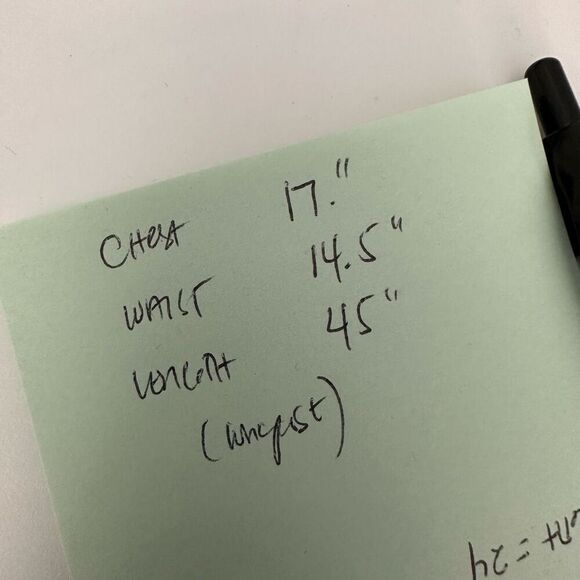 CHEST 17."
WAIST 14.5"
LENGTH 45"
(longest)
= 24